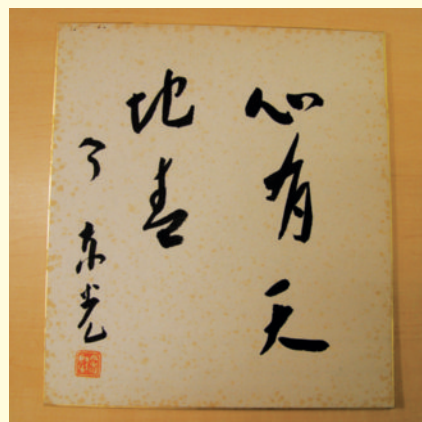 心有天
地春
今東光